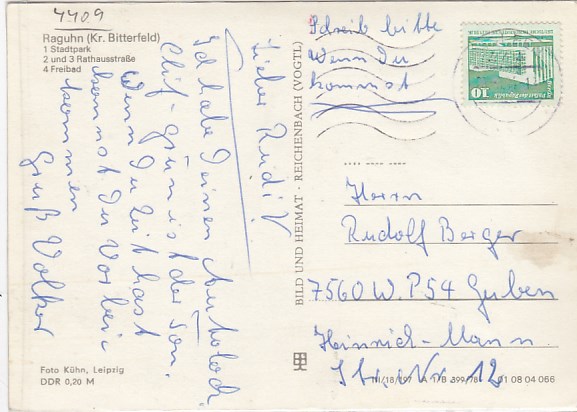 4409
Raguhn (Kr. Bitterfeld)
1 Stadtpark
2 und 3 Rathausstraße
4 Freibad
Lieber Rudi!
Ich habe Deinen Autolock
Chif- grün ist der Son.
Wenn Du Zeit hast
kannst Du Vorbei
kommen
Gruß Volker
Schreib bitte
Wenn Du
kommst
10
Herrn
Rudolf Berger
7560 W. P. S 4 Guben
Heinrich-Mann
Str. Nr. 12
BILD UND HEIMAT · REICHENBACH (VOGTL)
Foto Kühn, Leipzig
DDR 0,20 M
III/18/197 A 1/B 399/78 01 08 04 066